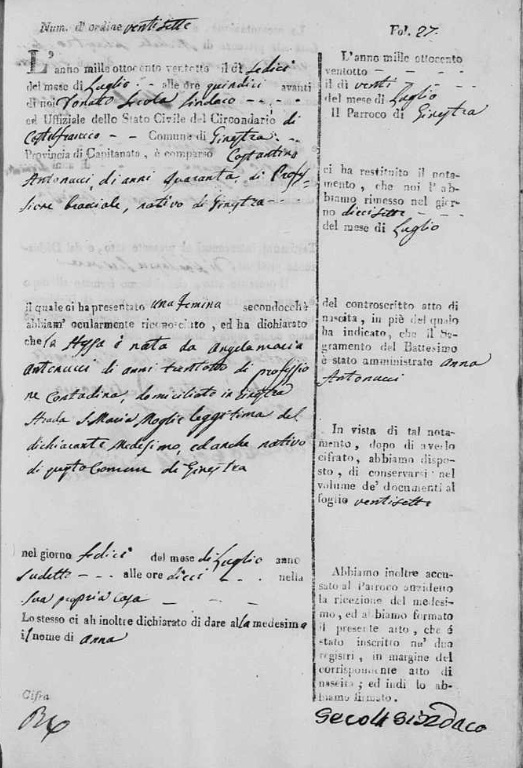 Num. d'ordine ventisette
L'anno mille ottocento ventotto il dì sedici
del mese di Luglio alle ore quindici avanti
di noi Donato Secola Sindaco
ed Uffiziale dello Stato Civile del Circondario di
Castelfranco Comune di Ginestra
Provincia di Capitanata, è comparso Costantino
Antonucci, di anni quaranta, di Profes
sione braciale, nativo di Ginestra
il quale ci ha presentato una femina secondocchè
abbiam' ocularmente riconosciuto, ed ha dichiarato
che la stessa è nata da Angelamaria
Antonucci di anni trentotto di professio
ne Contadina, domiciliata in Ginestra
Strada S. Maria, Moglie leggittima del
dichiarante Medesimo, ed anche nativo
di questo Comune di Ginestra
nel giorno sedici del mese di Luglio anno
sudetto alle ore dieci nella
sua propria casa
Lo stesso ci ah inoltre dichiarato di dare alla medesima
il nome di anna
Cifra
Fol. 27.
L'anno mille ottocento
ventotto
il dì venti
del mese di Luglio
Il Parroco di Ginestra
ci ha restituito il nota-
mento, che noi l'ab-
biamo rimesso nel gior-
no diecisette
del mese di Luglio
del controscritto atto di
nascita, in piè del qualo
ha indicato, che il Sa-
gramento del Battesimo
è stato amministrato anna
Antonucci
In vista di tal nota-
mento, dopo di averlo
cifrato, abbiamo dispo-
sto, di conservarsi nel
volume de' documenti al
foglio ventisette
Abbiamo inoltre accu-
sato al Parroco anzidetto
la ricezione del medesi-
mo, ed abbiamo formato
il presente atto, che è
stato inscritto ne' due
registri, in margine del
corrispondente atto di
nascita; ed indi lo ab-
biamo firmato.
Secola Sindaco